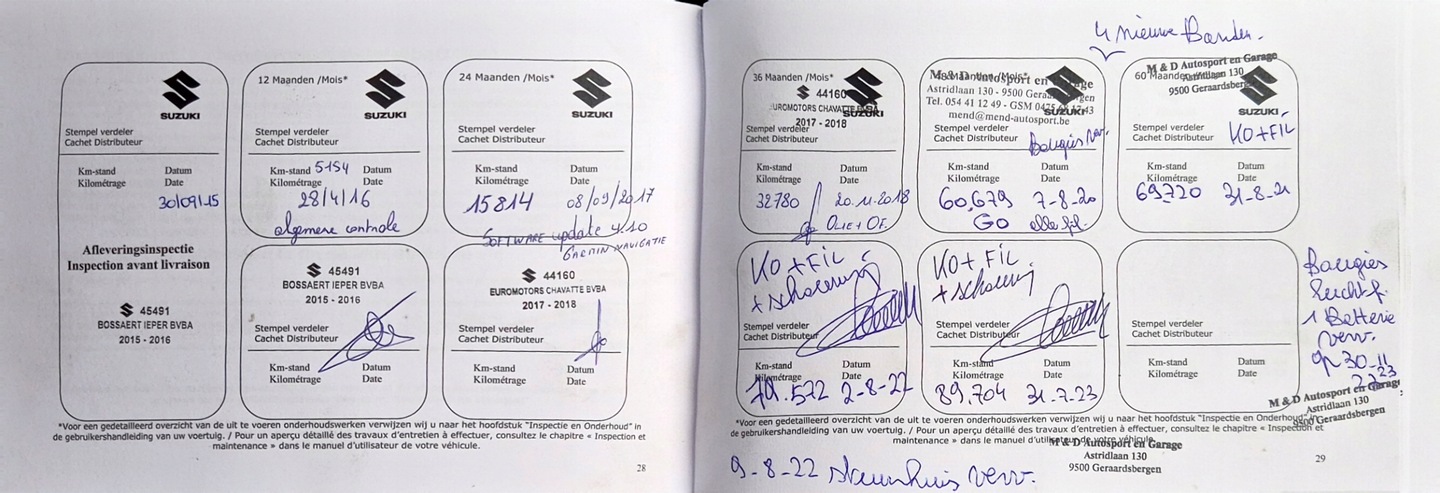 SUZUKI
Stempel verdeler
Cachet Distributeur
Km-stand Datum
Kilométrage Date
30/09/15
Afleveringsinspectie
Inspection avant livraison
45491
BOSSAERT IEPER BVBA
2015 - 2016
12 Maanden /Mois*
SUZUKI
Stempel verdeler
Cachet Distributeur
Km-stand 5154 Datum
Kilométrage Date
28/4/16
algemene controle
45491
BOSSAERT IEPER BVBA
2015 - 2016
Stempel verdeler
Cachet Distributeur
Km-stand Datum
Kilométrage Date
24 Maanden /Mois*
SUZUKI
Stempel verdeler
Cachet Distributeur
Km-stand Datum
Kilométrage Date
15814 08/09/2017
SOFTWARE update 4.10
GARMIN NAVIGATIE
44160
EUROMOTORS CHAVATTE BVBA
2017 - 2018
Stempel verdeler
Cachet Distributeur
Km-stand Datum
Kilométrage Date
*Voor een gedetailleerd overzicht van de uit te voeren onderhoudswerken verwijzen wij u naar het hoofdstuk "Inspectie en Onderhoud" in
de gebruikershandleiding van uw voertuig. / Pour un aperçu détaillé des travaux d'entretien à effectuer, consultez le chapitre « Inspection et
maintenance » dans le manuel d'utilisateur de votre véhicule.
28
4 nieuwe Banden.
36 Maanden /Mois*
44160
EUROMOTORS CHAVATTE BVBA
2017 - 2018
SUZUKI
Stempel verdeler
Cachet Distributeur
Km-stand Datum
Kilométrage Date
32780 20.11.2018
OLIE + OF.
48 Maanden /Mois*
M & D Autosport en Garage
Astridlaan 130 - 9500 Geraardsbergen
Tel. 054 41 12 49 - GSM 0475
mend@mend-autosport.be
SUZUKI
Stempel verdeler
Cachet Distributeur
Bougies verv.
Km-stand Datum
Kilométrage Date
60,679 7-8-20
GO alle fil.
60 Maanden
M & D Autosport en Garage
Astridlaan 130
9500 Geraardsbergen
SUZUKI
Stempel verdeler
Cachet Distributeur
KO + FIL
Km-stand Datum
Kilométrage Date
69,720 31-8-21
KO + FIL
Stempel verdeler
Cachet Distributeur
Km-stand Datum
Kilométrage Date
79.572 2-8-22
KO + FIL
Stempel verdeler
Cachet Distributeur
Km-stand Datum
Kilométrage Date
89,704 31-7-23
Stempel verdeler
Cachet Distributeur
Km-stand Datum
Kilométrage Date
Bougies
Lucht f.
1 Batterie
verv.
op 30-11
M & D Autosport en Garage
Astridlaan 130
9500 Geraardsbergen
*Voor een gedetailleerd overzicht van de uit te voeren onderhoudswerken verwijzen wij u naar het hoofdstuk "Inspectie en Onderhoud" in
de gebruikershandleiding van uw voertuig. / Pour un aperçu détaillé des travaux d'entretien à effectuer, consultez le chapitre « Inspection et
maintenance » dans le manuel d'utilisateur de votre véhicule.
M & D Autosport en Garage
Astridlaan 130
9500 Geraardsbergen
29
9-8-22 stuurhuis verv.